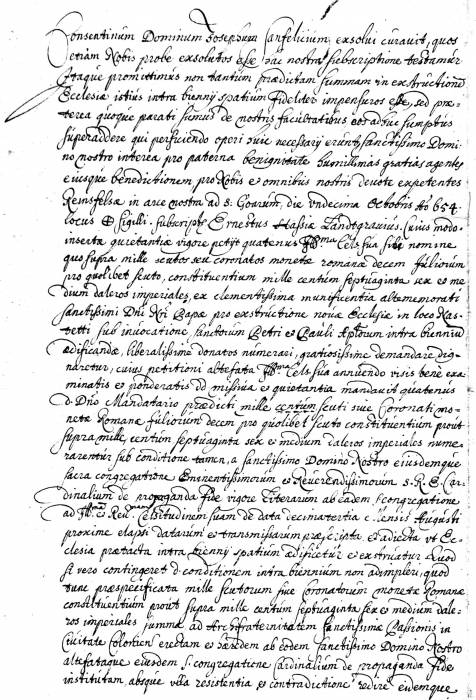 Consentinum Dominum Josephum Sanfelicium, exsolui curavit, quos
etiam Nobis probe exsolutos esse hac nostra subscriptione testamur
Itaque promittimus non tantum prædictam summam in exstructionem
Ecclesiæ istius intra biennÿ spatium fideliter impensuros esse, sed præ-
terea quoque parati sumus de nostris facultatibus eos adhuc sumptus
superaddere qui perficiendo operi huic necessarÿ erunt, sanctissimo Domi-
no nostro interea pro paterna benignitate humillimas gratias agentes
eiusque benedictionem pro Nobis et omnibus nostris devote expetentes
Reinfelsæ in arce nostra ad S. Goarum, die undecima Octobris Ao 654
locus ⊕ sigilli. subscriptr Ernestus Hassiæ Landtgravius, cuius modo
insertæ quietantiæ vigore petÿt quatenus Illma Cels. sua sibi nomine
quo supra mille scutos seu coronatos monetæ romanæ decem Juliorum
pro quolibet scuto, constituentium mille centum septuaginta sex et me-
dium daleros imperiales, ex clementissima munificentia altememorati
sanctissimi Dni Nri Papæ pro exstructione novæ Ecclesiæ in loco Nas-
tetti sub invocatione sanctorum Petri et Pauli Aptorum intra bienniu
ædificandæ, liberalissime donatos numerari, gratiosissime demandare dig-
naretur, cuius petitioni altefata Illma Celsitudo annuendo visis bene exa-
minatis et ponderatis dd missiva et quietantia mandavit quatenus
d. Dno Mandatario prædicti mille centum scuti sive Coronati mo-
netæ Romanæ Juliorum decem pro quolibet scuto constituentium prout
supra mille, centum septuaginta sex et medium daleros imperiales nume-
rarentur sub conditione tamen, a sanctissimo Domino Nostro eiusdemque
sacra congregatione Eminentissimorum et Reverendissimorum S. R. E. Car-
dinalium de propaganda fide vigore literarum ab eadem S. congregatione
ad Illmam et Revmam Celsitudinem suam de data decimatertia mensis Augusti
proxime elapsi datarum et transmissarum præscripta et adiecta ut Ec-
clesia prætacta intra biennÿ spatium ædificetur et exstruatur Quod
si vero contingeret d. conditionem intra biennium non adimpleri, quod
tunc præspecificata mille scutorum sive Coronatorum monetæ Romanæ
constituentium prout supra mille centum septuaginta sex et medium dale-
ros imperiales summa, ad Archifraternitatem Sanctissimæ Passionis in
Civitate Coloniensi erectam et eandem ab eodem sanctissimo Domino Nostro
altefataque eiusdem S. congregatione Cardinalium de propaganda fide
institutam, absque ulla resistentia et contradictione redire, eidemque